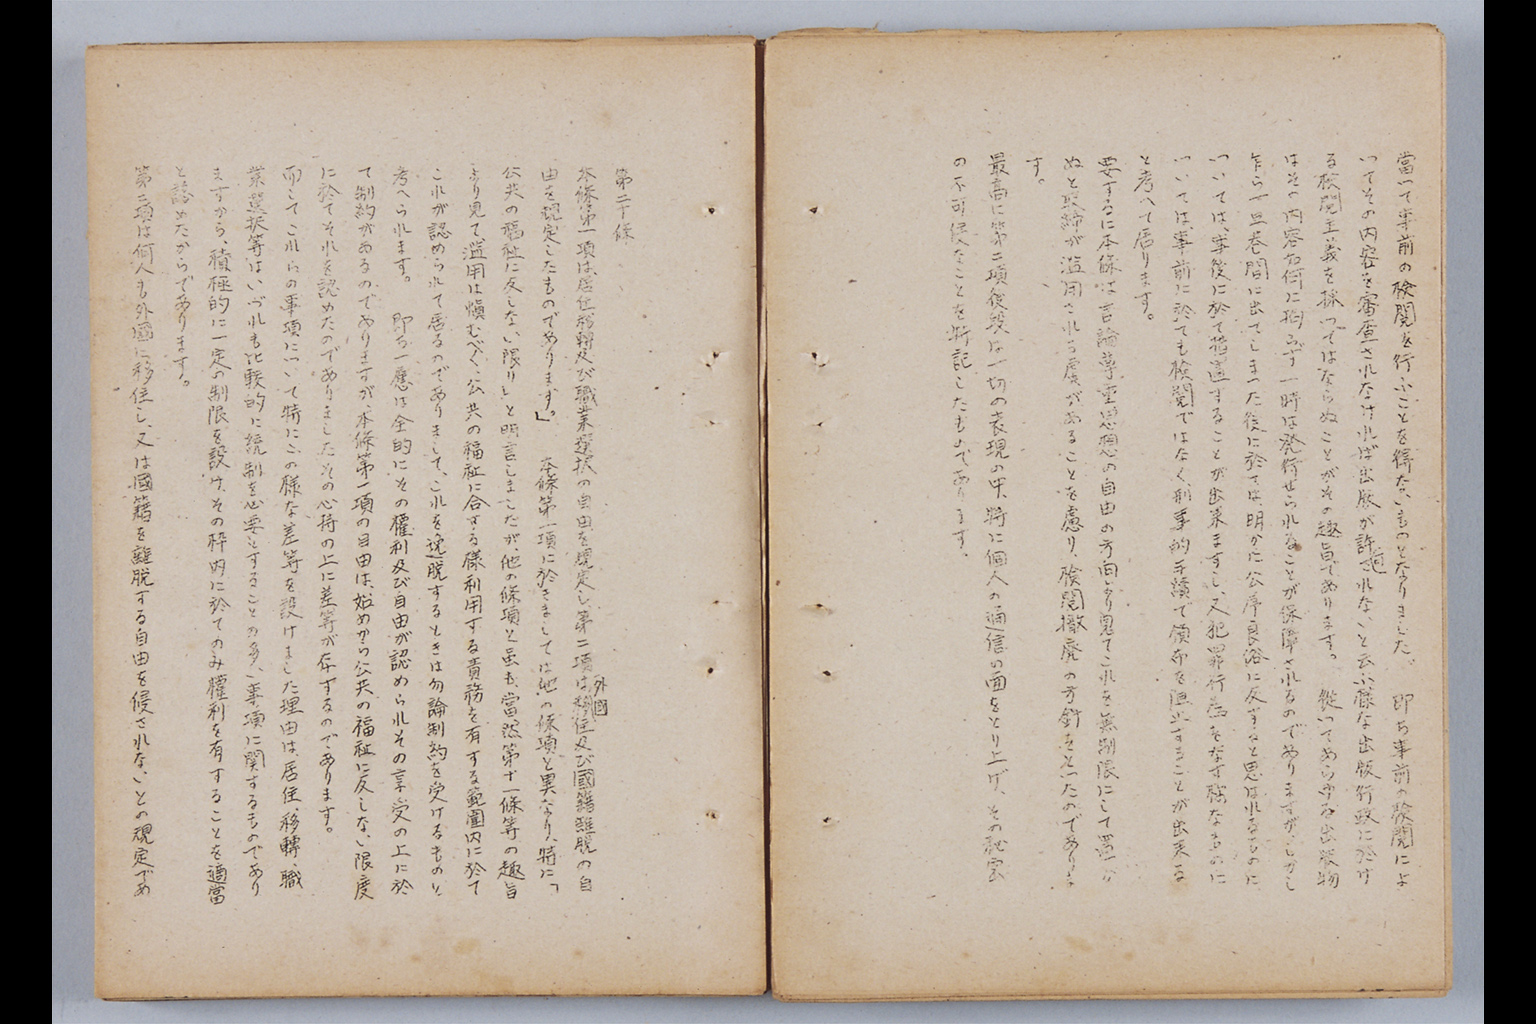 當つて事前の檢閲を行ふことを得ないものとなりました。 即ち事前の檢閲によ
つてその内容を審査されなければ出版が許されないと云ふ樣な出版行政に於け
る檢閲主義を採つてはならぬことがその趣旨であります。 從つてあらゆる出版物
はその内容如何に拘らず一時は発行せられることが保障されるのでありますが、しかし
乍ら一旦巷間に出てしまつた後に於ては明かに公序良俗に反すると思はれるものに
ついては、事後に於て措置することが出来ますし、又犯罪行為をなす樣なものに
ついては、事前に於ても檢閲ではなく、刑事的手續で頒布を阻止することが出来る
と考へて居ります。
要するに本條は言論尊重思想の自由の方向より見てこれを無制限にして置か
ぬと取締が濫用される虞があることを慮り、檢閲撤廃の方針をとつたのでありま
す。
最高に第二項後段は一切の表現の中、特に個人の通信の面をとり上げ、その秘密
の不可侵なことを特記したものであります。
第二十條
本條第一項は居住、移轉及び職業選択の自由を規定し、第二項は外國移住及び國籍離脱の自
由を規定したものであります。」 本條第一項に於きましては他の條項と異なり、特に「
公共の福祉に反しない限り」と明言しましたが、他の條項と虽も、當然第十一條等の趣旨
より見て濫用は愼むべく、公共の福祉に合する樣利用する責務を有する範圍内に於て
これが認められて居るのでありまして、これを逸脱するときは勿論制約を受けるものと
考へられます。 即ち一應は全的にその權利及び自由が認められその享受の上に於
て制約があるのでありますが、本條第一項の自由は、始めから公共の福祉に反しない限度
に於てそれを認めたのでありましたその心持の上に差等が存するのであります。
而してこれらの事項について特にこの樣な差等を設けました理由は、居住、移轉、職
業選択等はいづれも比較的に統制を必要とすることの多い事項に関するものであり
ますから、積極的に一定の制限を設け、その枠内に於てのみ權利を有することを適當
と認めたからであります。
第二項は何人も外國に移住し、又は國籍を離脱する自由を侵されないとの規定であ